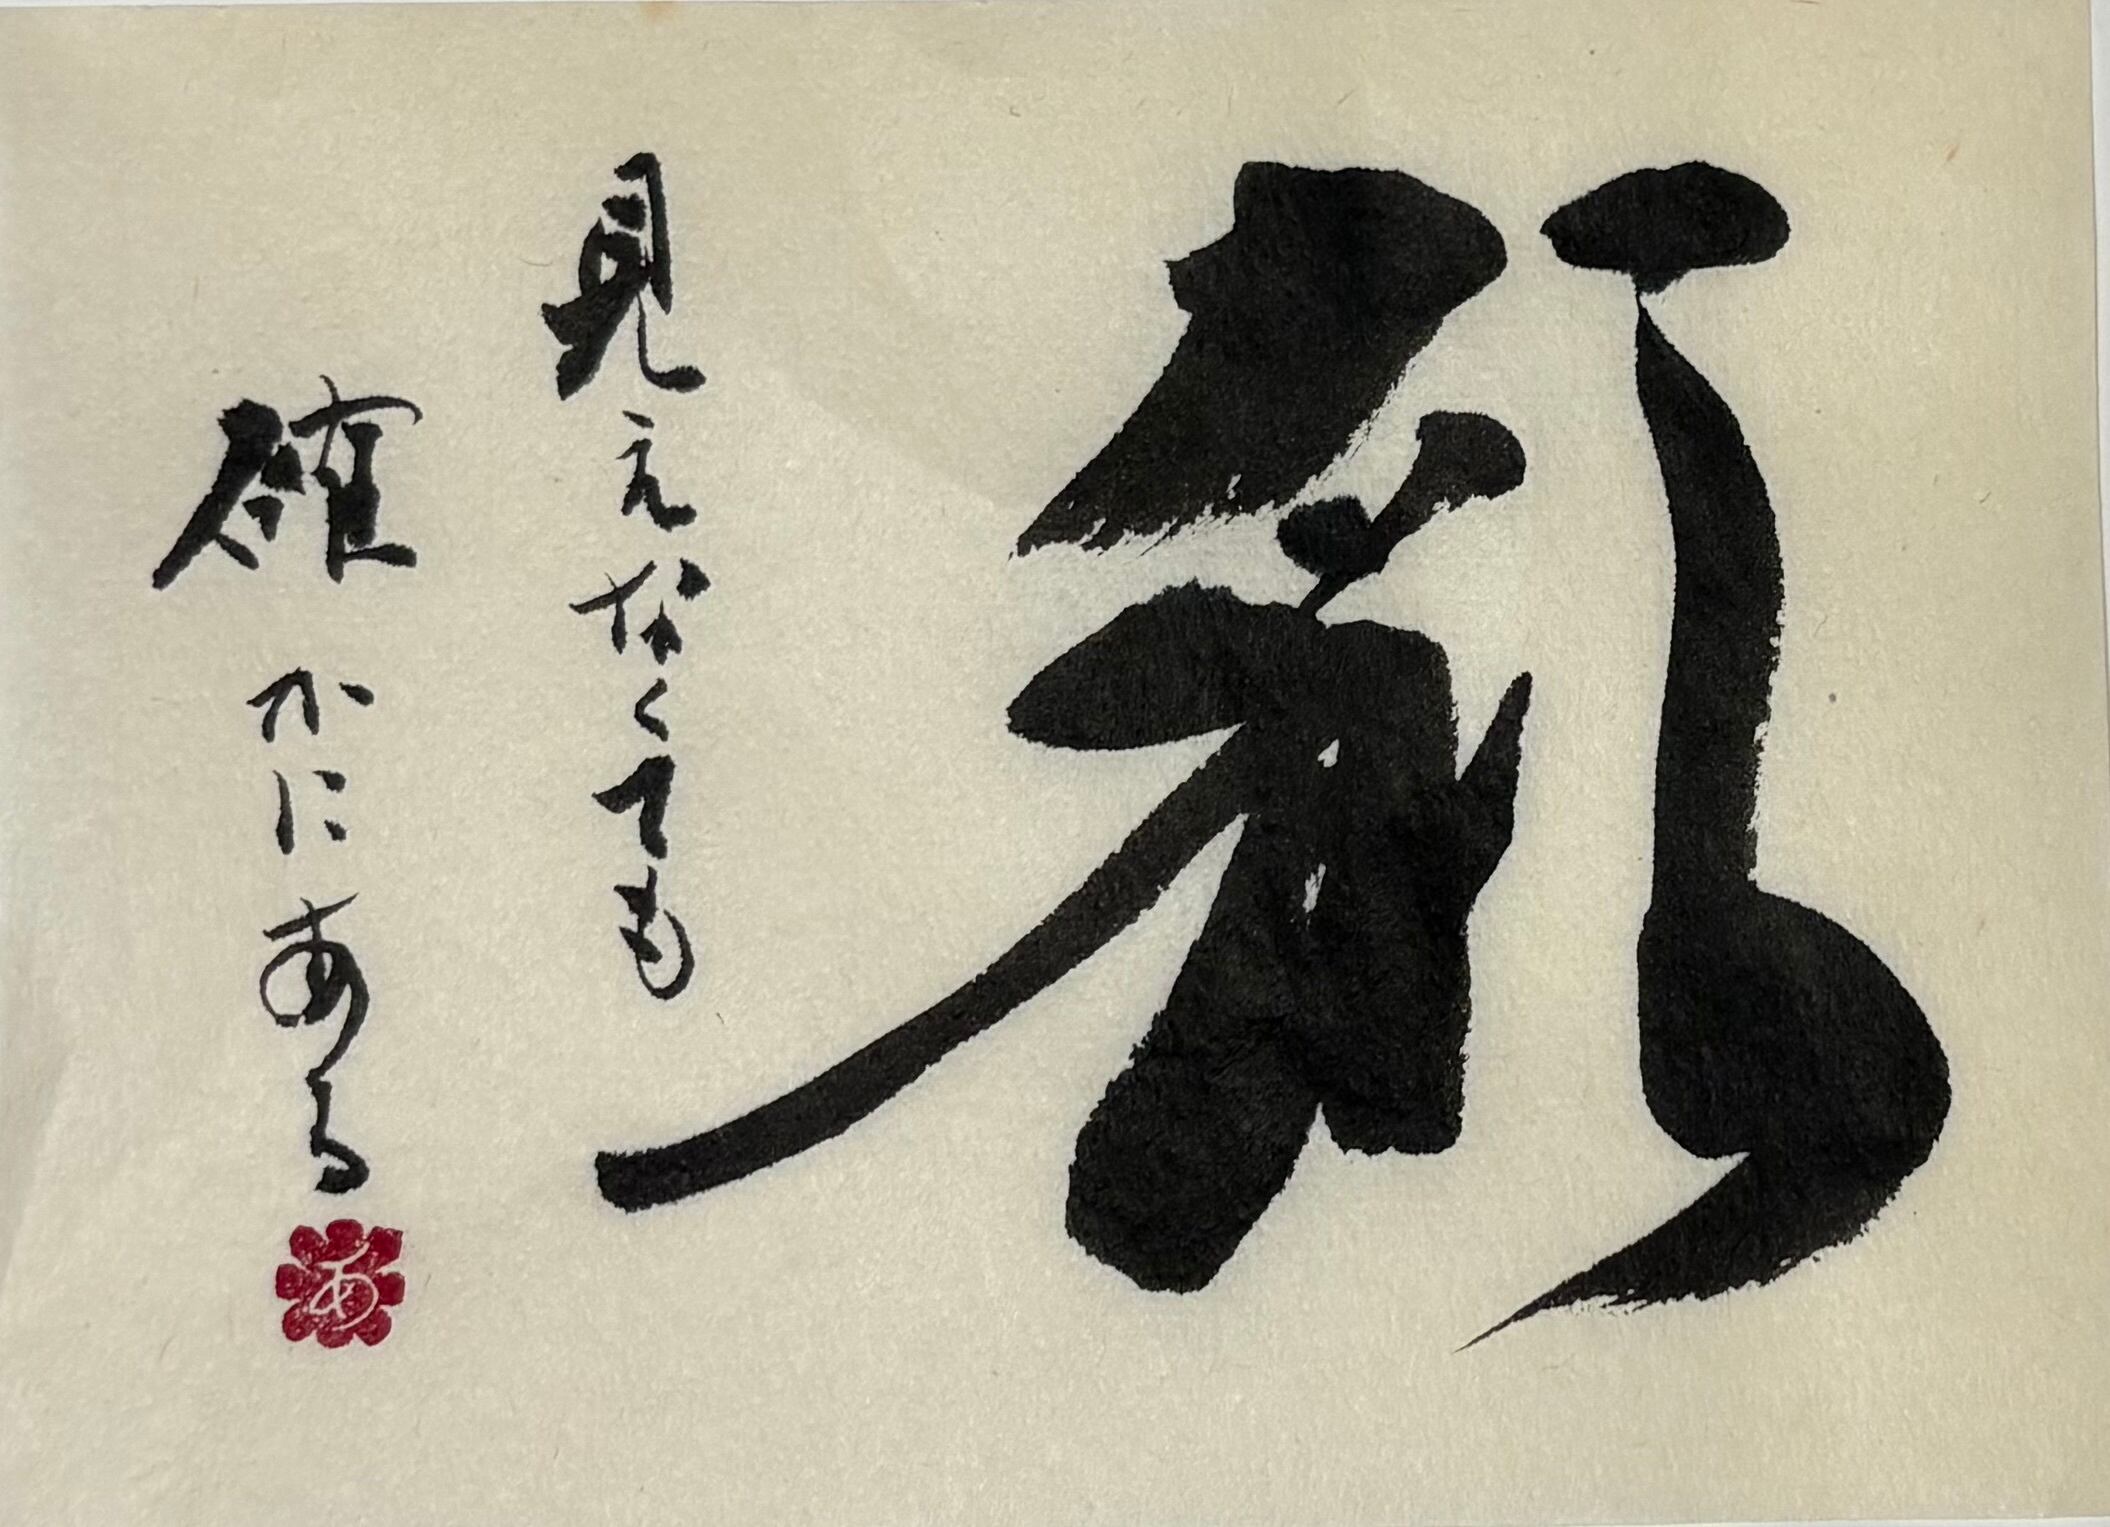 見えなくても
確かにある
あ